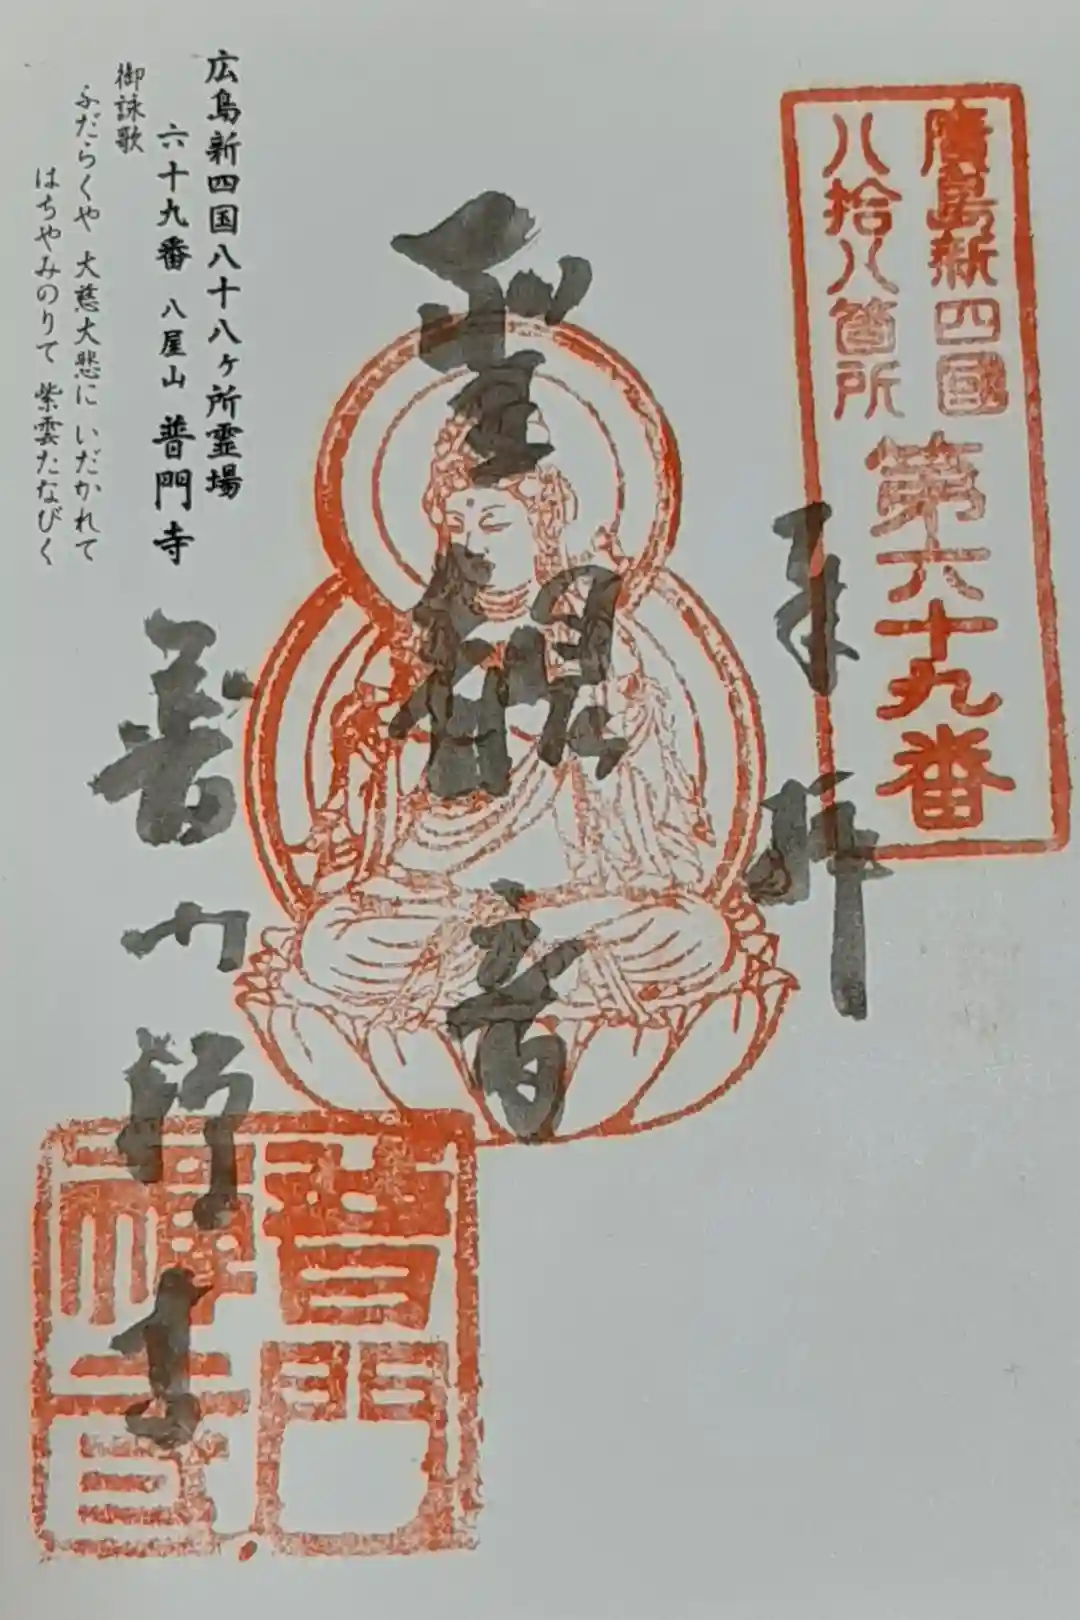 廣島新四國
八拾八箇所
第六十九番
奉拝
聖観音
普門禅寺
普門
禅寺
広島新四国八十八ヶ所霊場
六十九番 八屋山 普門寺
御詠歌
ふだらくや 大慈大悲に いだかれて
はちやみのりて 紫雲たなびく